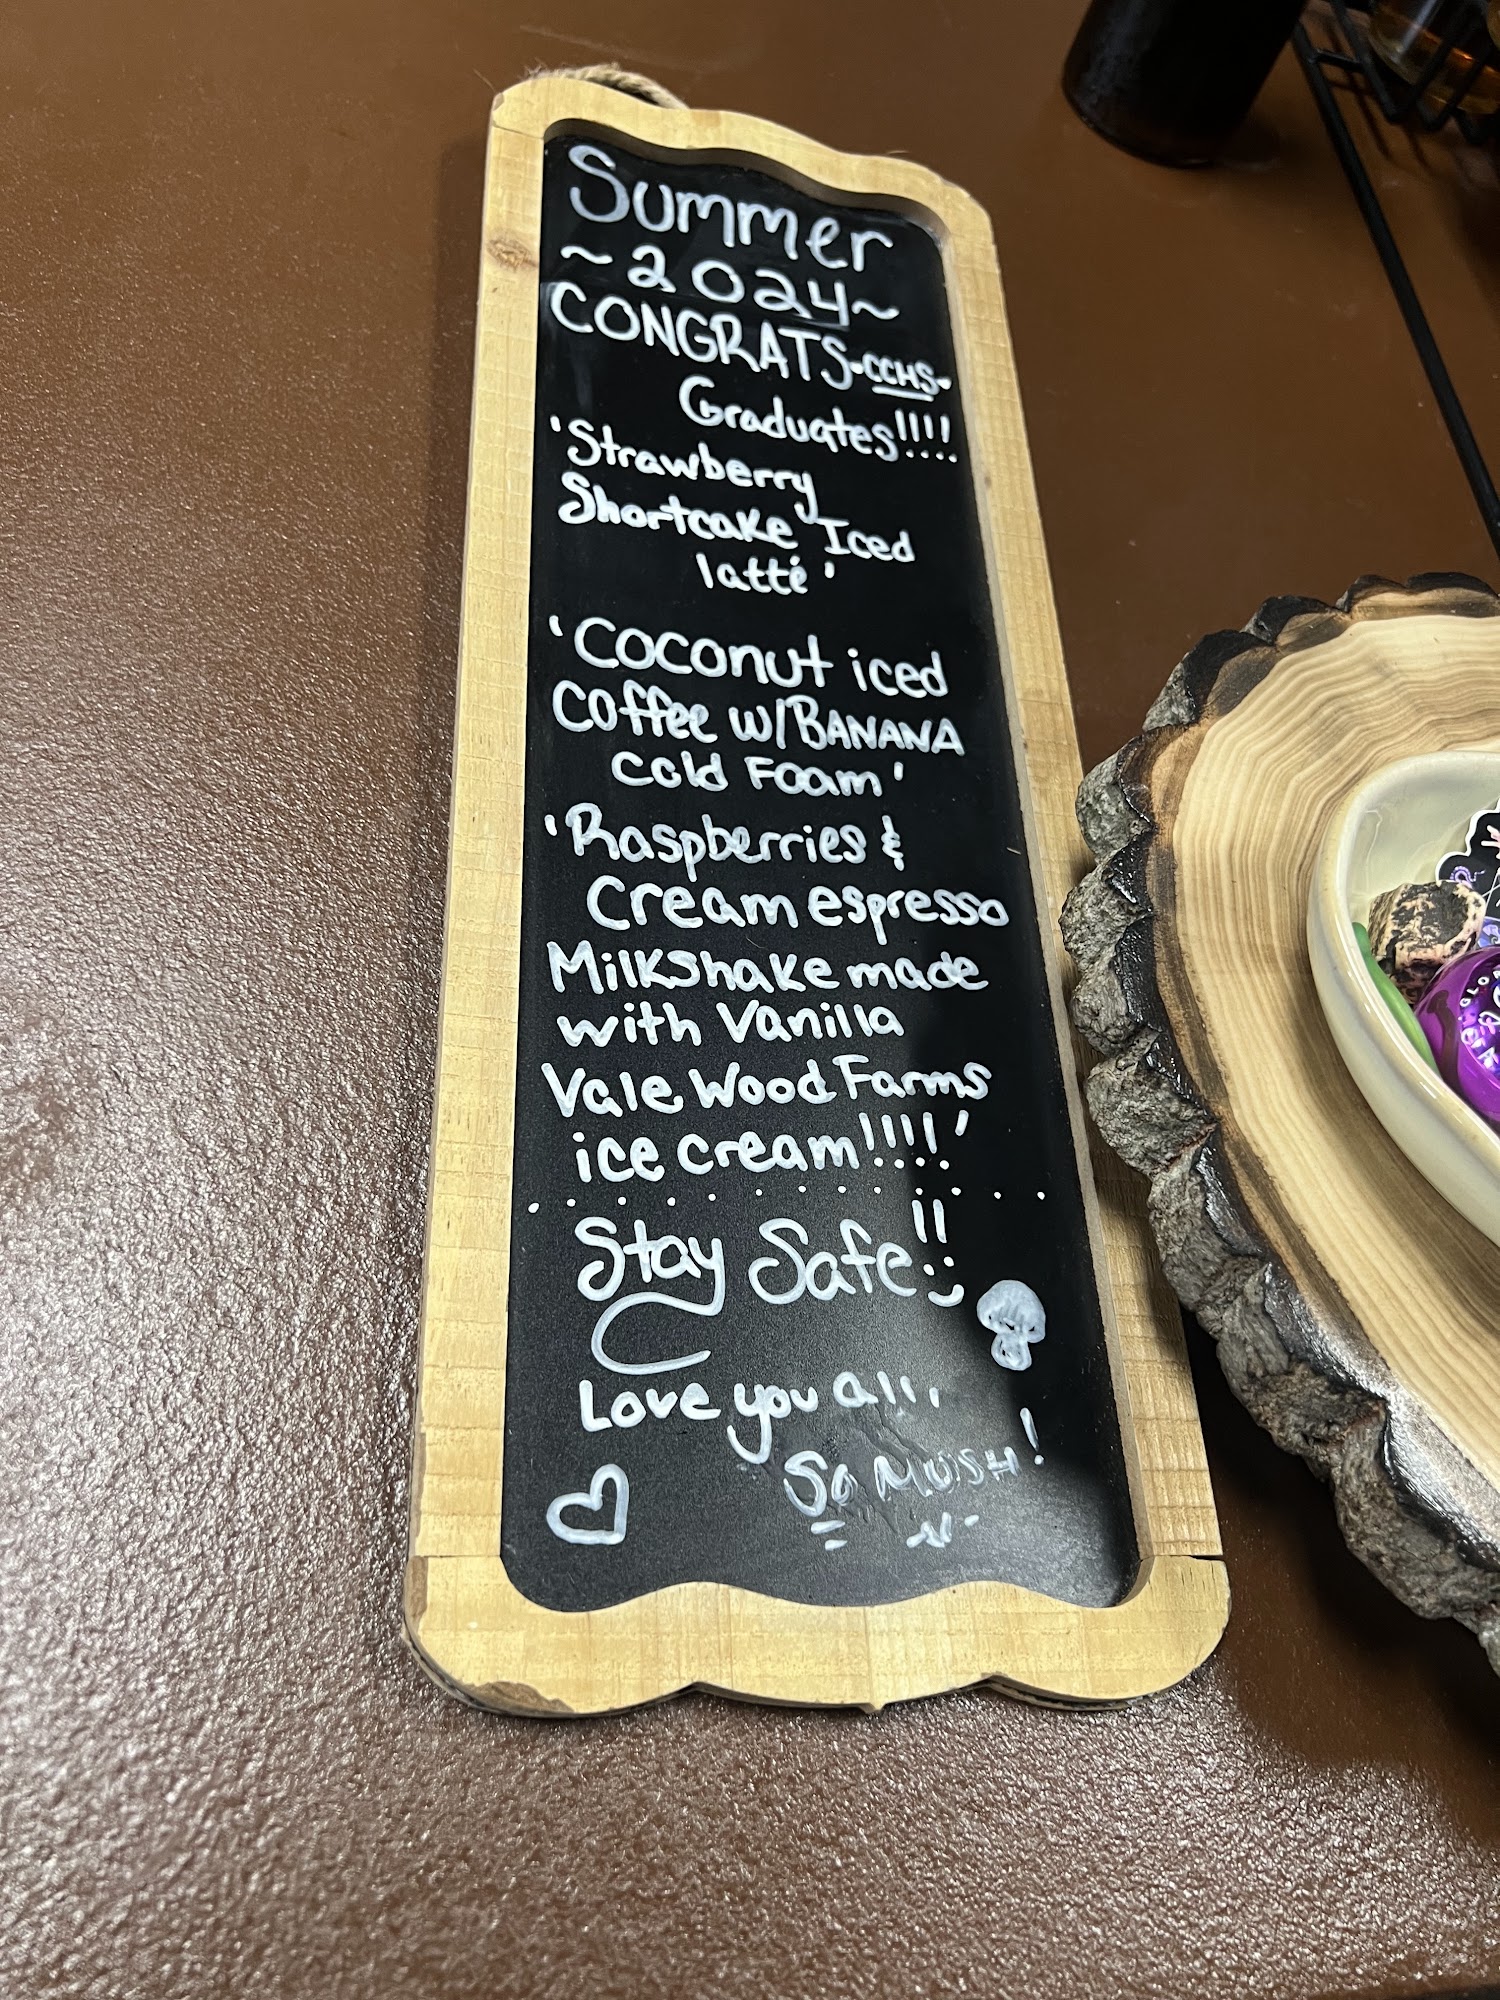 Summer
~2024~
CONGRATS•CCHS•
Graduates!!!!
'Strawberry
Shortcake Iced
latté'
'Coconut iced
Coffee w/BANANA
Cold Foam'
'Raspberries &
Cream espresso
Milkshake made
with Vanilla
Vale Wood Farms
ice cream!!!!'
Stay Safe!! :)
Love you all,
So MUSH!